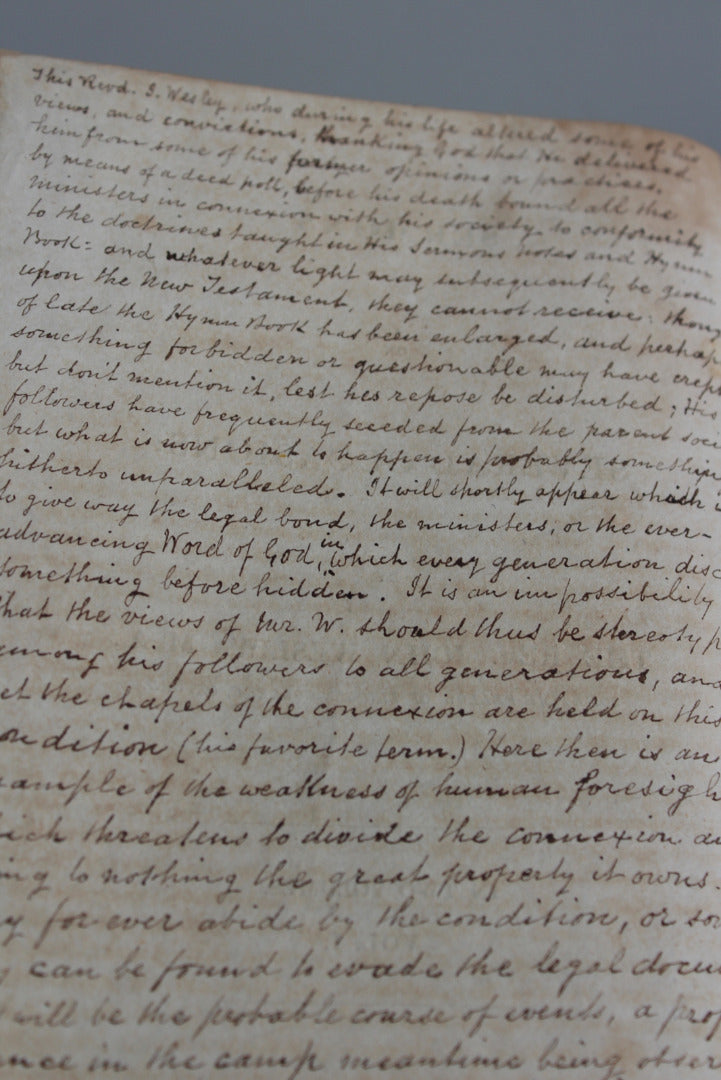 This Revd. J. Wesley, who during his life altered some of his
views, and convictions, thanking God that He delivered
him from some of his former opinions or practices,
by means of a deed poll, before his death bound all the
ministers in connexion with his society to conformity
to the doctrines taught in His Sermons notes and Hymn
Book = and whatever light may subsequently be given
upon the New Testament, they cannot receive: thoug
of late the Hymn Book has been enlarged, and perhap
something forbidden or questionable may have crept
but don't mention it, lest hes repose be disturbed; His
followers have frequently seceded from the parent soci
but what is now about to happen is probably something
hitherto unparalleled. It will shortly appear which i
to give way the legal bond, the ministers, or the ever-
advancing Word of God, in which every generation disc
something before hidden. It is an impossibility
that the views of Mr. W. should thus be stereotyp
among his followers to all generations, and
et the chapels of the connexion are held on this
ondition (his favorite term.) Here then is an
xample of the weakness of human foresigh
hich threatens to divide the connexion an
ing to nothing the great property it owns.
y for ever abide by the condition, or so
y can be found to evade the legal docu
will be the probable course of events, a prop
ance in the camp meantime being obser